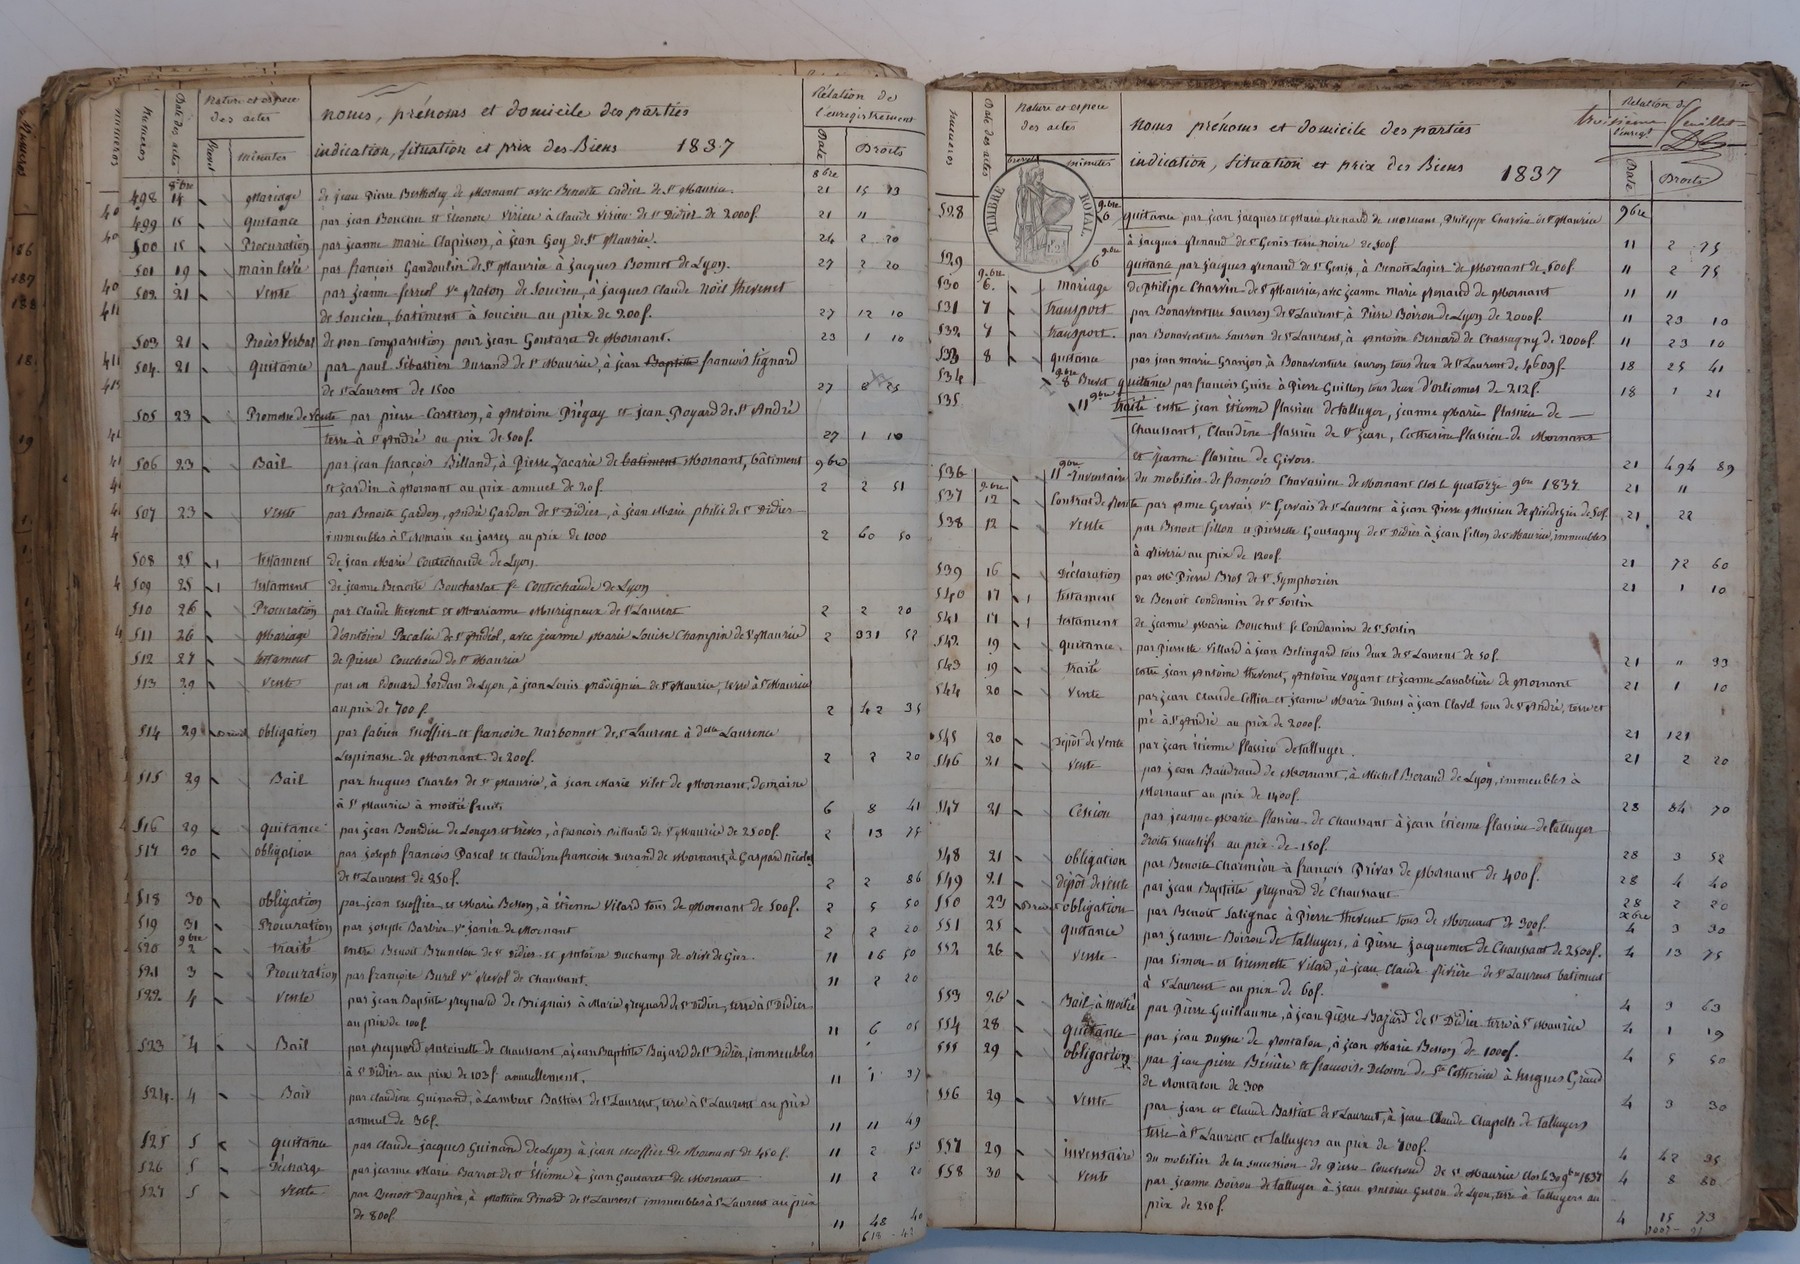 Numeros
Date des actes
Nature et espece des actes
Brevet
minutes
noms, prénoms et domicile des parties
indication, situation et prix des Biens 1837
Rélation de l'enregistrement
Date
Droits
498 8bre 14 Mariage de jean Pierre Bertholey de Mornant avec Benoite Cadier de St Maurice. 8bre 21 15 73
499 15 Quitance par jean Boucher et Eleonore Virieu à Claude Virieu de St Didier de 2000f. 21 11
500 15 Procuration par jeanne marie Clapisson, à jean Goy de St Maurice. 24 2 20
501 19 main levée par françois Gandoulin de St Maurice à jacques Bonnet de Lyon. 27 2 20
502 21 Vente par jeanne ferreol Ve Raton de Soucieu, à jacques Claude Noël thevenet
de Soucieu, batiment à Soucieu au prix de 200f. 27 12 10
503 21 Procès Verbal de non Comparution pour jean Goutaret de Mornant. 23 1 10
504 21 Quitance par paul Sébastien Durand de St Maurice, à jean Baptiste françois
de St Laurent de 1500 27 8 25
505 23 Promesse de Vente par pierre Carteron, à Antoine Piégay et jean Poyard de St André
terre à St André au prix de 500f. 27 1 10
506 23 Bail par jean françois Billand, à Pierre Zacarie de batiment Mornant, bâtiment 9bre
et jardin à Mornant au prix annuel de 20f. 2 2 51
507 23 Vente par Benoite Gardon, André Gardon de St Didier, à jean Marie philis de St Didier
immeubles à St Romain en jarrez au prix de 1000 2 60 50
508 25 1 testament de jean Marie Coutechaude de Lyon.
509 25 1 testament de jeanne Benoite Boucharlat fe Coutechaude de Lyon
510 26 Procuration par Claude thevenet et Marianne Murigneux de St Laurent 2 2 20
511 26 Mariage d'Antoine Pacalin de St Andéol, avec jeanne Marie Louise Champin de St Maurice 2 331 52
512 27 testament de Pierre Couchoud de St Maurice
513 29 Vente par m Edouard Jordan de Lyon, à jean Louis de St Maurice, terre à St Maurice
au prix de 700 f. 2 42 35
514 29 Brevet obligation par fabien Escoffier et francoise Narbonnet de St Laurent à dlle Laurence
Lespinasse de Mornant de 200f. 2 2 20
515 29 Bail par hugues Charles de St Maurice, à jean Marie Vilet de Mornant, domaine
à St Maurice à moitié fruit. 6 8 41
516 29 quitance par jean Bourdin de Longes et frères, à francois Billard de St Maurice de 2500f. 2 13 75
517 30 obligation par joseph francois Pascal et Claudine francoise Durand de Mornant, à Gaspard Nicolas
de St Laurent de 250f. 2 2 86
518 30 obligation par jean escoffier et Marie Besson, à étienne Vilard tous de Mornant de 500f. 2 5 50
519 31 Procuration par josepte Barbier Ve janin de Mornant 2 2 20
520 9bre 2 traité entre Benoit Brunelon de St Didier et Antoine Duchamp de rive de Gier. 11 16 50
521 3 Procuration par françoise Burel Ve Revol de Chaussant. 11 2 20
522 4 Vente par jean Baptiste Reynard de Brignais à Marie Reynard de St Didier, terre à St Didier
au prix de 100f. 11 6 05
523 4 Bail par Reynard Antoinette de Chaussant, à jean Baptiste Bajard de St Didier, immeubles
à St Didier au prix de 103f annuellement. 11 1 37
524 4 Bail par Claudine Guinand, à Lambert Bastias de St Laurent, terre à St Laurent au prix
annuel de 36f. 11 11 49
525 5 quitance par Claude jacques Guinand de Lyon à jean escoffier de Mornant de 450f. 11 2 53
526 5 Décharge par jeanne Marie Barrot de St Etienne à jean Goutaret de Mornant 11 2 20
527 5 Vente par Benoit Dauphin, à Mathieu Pinard de St Laurent immeubles à St Laurent au prix
de 800f. 11 48 40
618 - 42
Numeros
Date des actes
Nature et espece des actes
brevet
minutes
Noms prénoms et domicile des parties
indication, situation et prix des Biens 1837
troisieme feuillet
Relation de l'enregt
Date
Droits
TIMBRE ROYAL.
528 9bre 6 quitance par jean jacques et Marie Renaud de Mornant, Philippe Charvin de St Maurice 9bre
à jacques Renaud de St Genis terre noire de 500f 11 2 75
529 9bre 6 quitance par jacques Renaud de St Genis, à Benoit Lagier de Mornant de 500f. 11 2 75
530 9bre 6. mariage de philipe Charvin de St Maurice, avec jeanne marie Renaud de Mornant 11 11
531 7 transport par Bonaventure Sauron de St Laurent, à Pierre Boiron de Lyon de 2000f. 11 23 10
532 7 transport. par Bonaventure Sauron de St Laurent, à Antoine Besnard de Chassagny de 2000f. 11 23 10
533 8 quitance par jean marie Granjon, à Bonaventure Sauron tous deux de St Laurent de 4609f. 18 25 41
534 9bre 8 Brevet quitance par francois Guise à Pierre Guillon tous deux d'orlienas de 212f. 18 1 21
535 11 9bre traité entre jean étienne flassieu de talluyer, jeanne Marie flassieu de
Chaussant, Claudine flassieu de St jean, Catherine flassieu de Mornant
et jeanne flassieu de Givors. 21 494 89
536 11 9bre Inventaire du mobilier de françois Chavassieu de Mornant clos le quatorze 9bre 1837 21 11
537 9bre 12 Contrat de Rente par Anne Gervais Ve Gervais de St Laurent à jean Pierre Mussieu de Rivedegier de 50f. 21 22
538 12 vente par Benoit fillon et Pierrette Goutagny de St Didier à jean fillon de St Maurice, immeubles
à Riverie au prix de 1200f. 21 72 60
539 16 Déclaration par Mr Pierre Bros de St Symphorien 21 1 10
540 17 1 testament de Benoit Condamin de St Sorlin
541 17 1 testament de jeanne Marie Bouchut fe Condamin de St Sorlin
542 19 quitance par Pierrette Villard à jean Belingard tous deux de St Laurent de 50f. 21 " 33
543 19 traité entre jean Antoine thevenet, Antoine Voyant et jeanne Lassablière de Mornant 21 1 10
544 20 Vente par jean Claude Cellier et jeanne Marie Dussus à jean Clavel tous de St André, terre et
pré à St André au prix de 2000f. 21 121
545 20 Dépôt de vente par jean étienne flassieu de talluyer. 21 2 20
546 21 Vente par jean Baudrand de Mornant, à Michel Berand de Lyon, immeubles à
Mornant au prix de 1400f. 28 84 70
547 21 Cession par jeanne Marie flassieu de Chaussant à jean étienne flassieu de talluyer
droits successifs au prix de 150f. 28 3 52
548 21 obligation par Benoite Charmion à françois Privas de Mornant de 400f. 28 4 40
549 21 dépôt de vente par jean Baptiste Reynard de Chaussant 28 2 20
550 23 Brevet obligation par Benoit Salignac à Pierre thevenet tous de Mornant de 300f. Xbre 4 3 30
551 25 quitance par jeanne Boirou de talluyers, à Pierre jacquemet de Chaussant de 2500f. 4 13 75
552 26 Vente par Simon et trennette Vilard, à jean Claude Rivière de St Laurent batiment
à St Laurent au prix de 60f. 4 3 63
553 26 Bail à moitié par Pierre Guillaume, à jean Pierre Bajard de St Didier terre à St Maurice 4 1 19
554 28 quitance par jean Dugne de Rontalon, à jean Marie Besson de 1000f. 4 5 50
555 29 obligation par jean pierre Bénière et francoise Delorme de Ste Catherine à hugues Giraud
de Rontalon de 300 4 3 30
556 29 Vente par jean et Claude Bastiat de St Laurent, à jean Claude Chapelle de talluyers
terre à St Laurent et talluyers au prix de 700f. 4 42 35
557 29 inventaire du mobilier de la succession de Pierre Couchoud de St Maurice clos le 30 9bre 1837 4 8 80
558 30 Vente par jeanne Boirou de talluyer à jean Antoine Guson de Lyon, terre à talluyers au
prix de 250f. 4 15 73